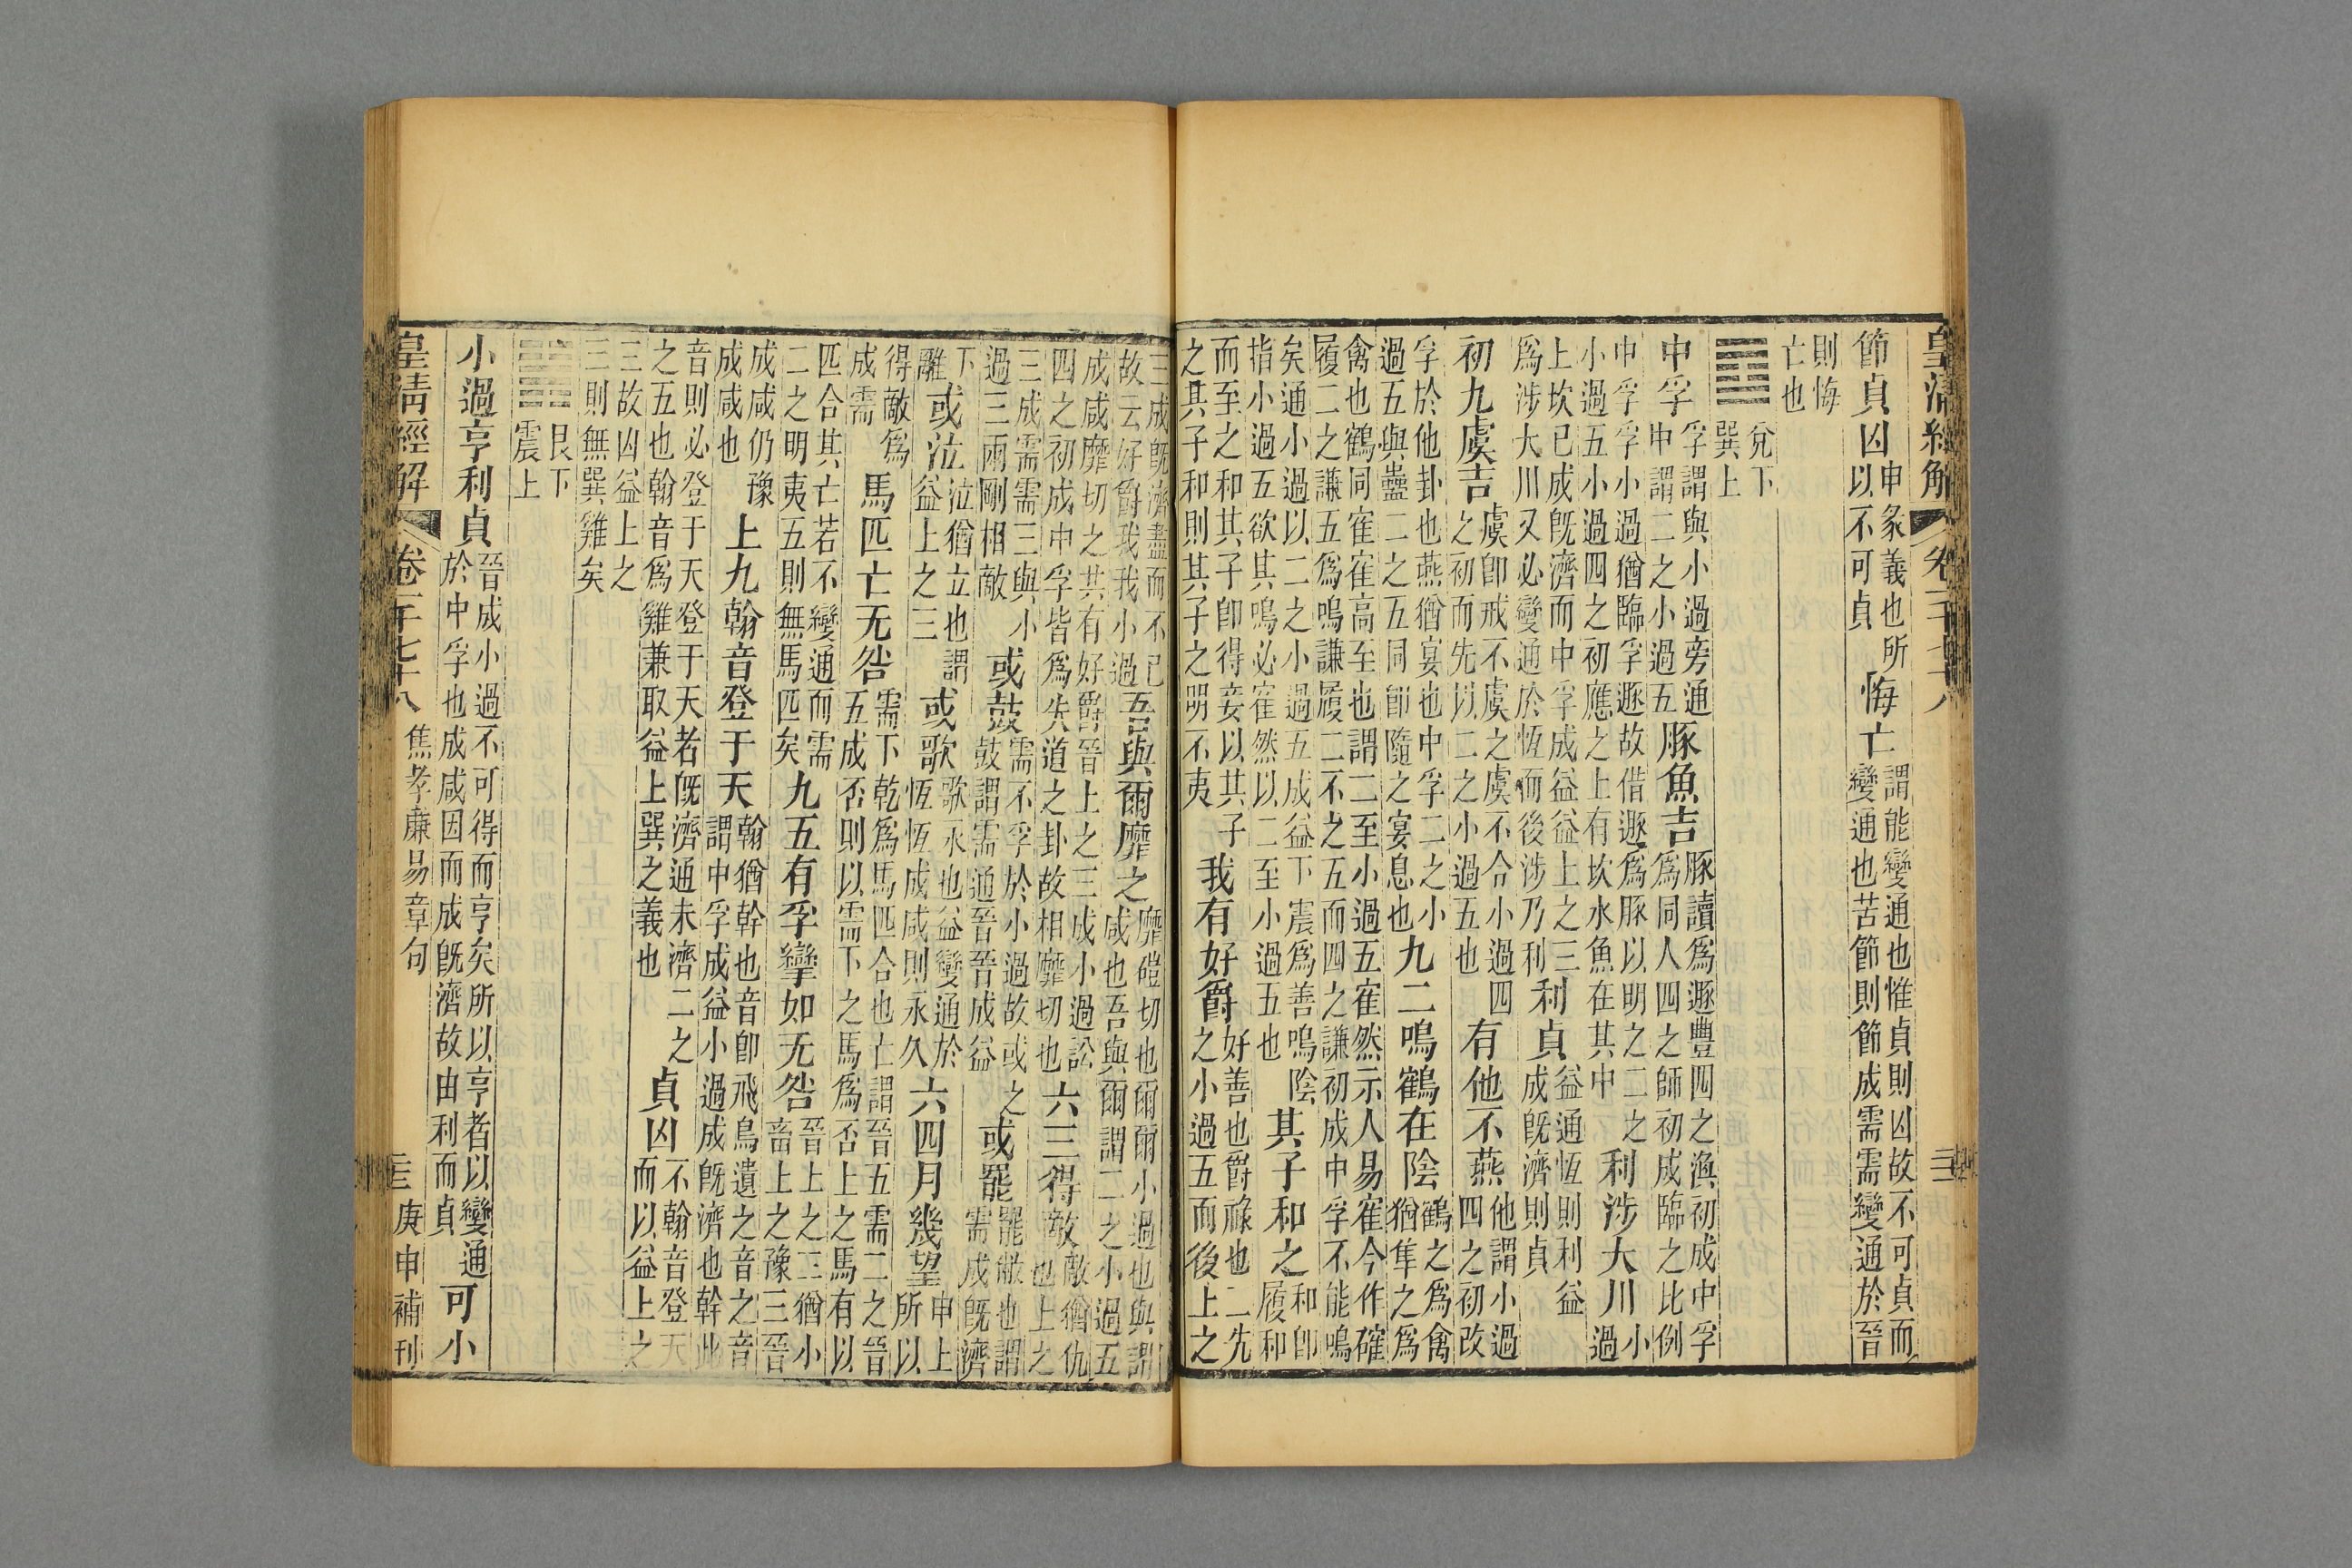 皇清經解 卷一千七十八
節貞凶申彖義也所以不可貞悔亡謂能變通也惟貞則凶故不可貞而變通也苦節則節成需需變通於晉
則悔亡也
兌下巽上
中孚孚謂與小過旁通中謂二之小過五豚魚吉豚讀爲遯豐四之渙初成中孚爲同人四之師初成臨之比例
中孚孚小過猶臨孚遯故借遯爲豚以明之二之小過五小過四之初應之上有坎水魚在其中利涉大川小過
上坎已成旣濟而中孚成益益上之三爲涉大川又必變通於恆而後涉乃利利貞益通恆則利益成旣濟則貞
初九虞吉虞卽戒不虞之虞不合小過四之初而先以二之小過五也有他不燕他謂小過四之初改
孚於他卦也燕猶宴也中孚二之小過五與蠱二之五同卽隨之宴息也九二鳴鶴在陰鶴之爲禽猶隼之爲
禽也鶴同寉寉高至也謂二至小過五寉然示人易寉今作確履二之謙五爲鳴謙履二不之五而四之謙初成中孚不能鳴
矣通小過以二之小過五成益下震爲善鳴陰指小過五欲其鳴必寉然以二至小過五也其子和之和卽履和
而至之和其子卽得妾以其子之其子和則其子之明不夷我有好爵好善也爵祿也二先之小過五而後上之
三成旣濟盡而不已故云好爵我我小過吾與爾靡之靡磑切也爾爾小過也與謂咸也吾與爾謂二之小過五
成咸靡切之其有好爵晉上之三成小過訟四之初成中孚皆爲失道之卦故相靡切也六三得敵敵猶仇也上之
三成需需三與小過三兩剛相敵或鼓需不孚於小過故或之鼓謂需通晉晉成益或罷罷敝也謂需成旣濟
下離或泣泣猶立也謂益上之三或歌歌永也益變通於恆恆成咸則永久六四月幾望申上所以
得敵爲成需馬匹亡无咎需下乾爲馬匹合也亡謂晉五需二之晉五成否則以需下之馬爲否上之馬有以
匹合其亡若不變通而需二之明夷五則無馬匹矣九五有孚攣如无咎晉上之三猶小畜上之豫三晉
成咸仍豫成咸也上九翰音登于天翰猶幹也音卽飛鳥遺之音之音謂中孚成益小過成旣濟也幹此
音則必登于天登于天者旣濟通未濟二之之五也翰音爲雞兼取益上巽之義也貞凶不翰音登天而以益上之
三故凶益上之三則無巽雞矣
艮下震上
小過亨利貞晉成小過不可得而亨矣所以亨者以變通於中孚也成咸因而成旣濟故由利而貞可小
皇清經解 卷一千七十八 焦孝廉易章句 庚申補刊